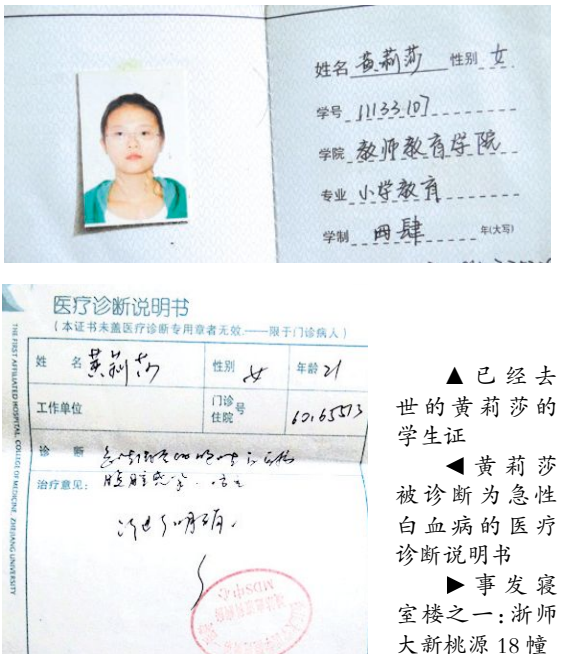 姓名 黄莉莎 性别 女
学号 11133107
学院 教师教育学院
专业 小学教育
学制 四肆 年(大写)
医疗诊断说明书
(本证书未盖医疗诊断专用章者无效.——限于门诊病人)
THE FIRST AFFILIATED HOSPITAL, COLLEGE OF MEDICINE, ZHEJIANG UNIVERSITY
姓 名 黄莉莎 性别 女 年龄 21
工作单位 门诊住院号
诊 断
治疗意见:
MDS中心
▲已经去
世的黄莉莎的
学生证
◀黄莉莎
被诊断为急性
白血病的医疗
诊断说明书
▶事发寝
室楼之一:浙师
大新桃源18幢